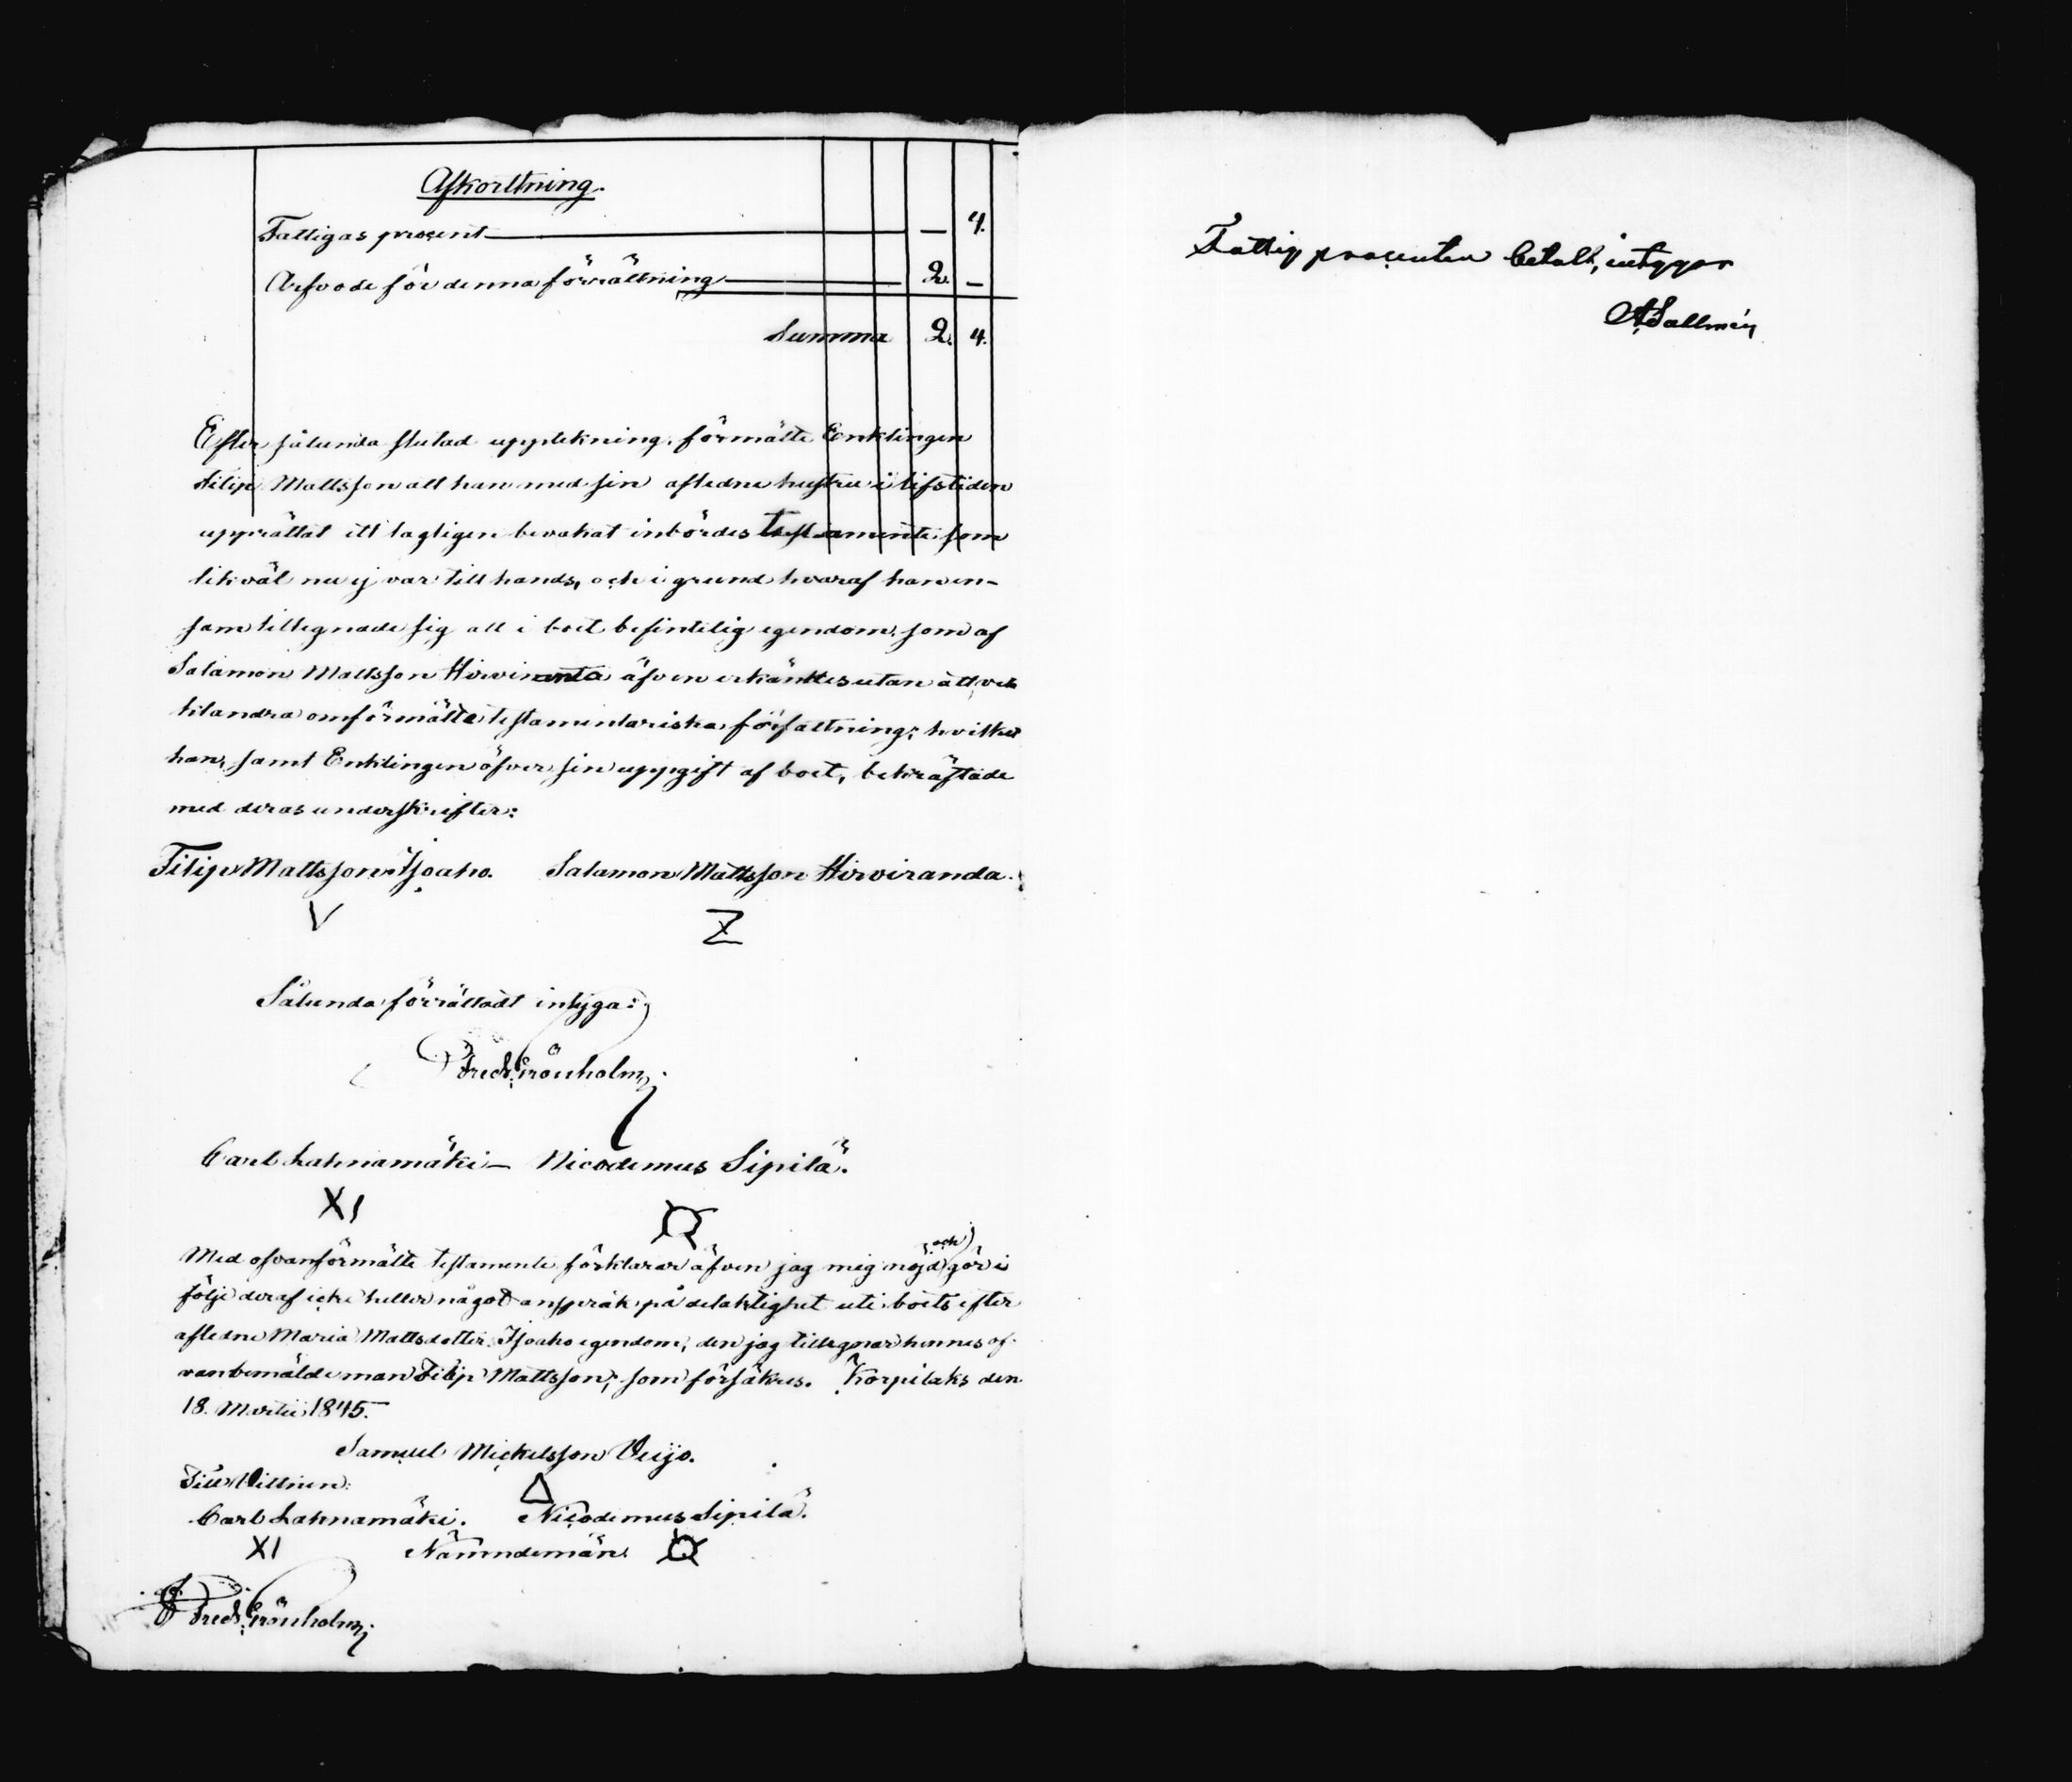 Afkorttning.
Fattigas procent — 4.
Arfvode för denna förrättning 2. —
Summa 2. 4.
Efter sålunda slutad uppteckning, förmälte Enklingen
Filip Mattsson att han med sin aflidne hustru i lifstiden
upprättat ett lagligen bevakat inbördes testamente, som
likväl nu ej var till hands, och i grund hvaraf han en-
sam tillegnade sig all i boet befintelig egendom, som af
Salamon Mattsson Hirviranta äfven erkändes utan att vel
klandra omförmälta testamentariska författning; hvilket
han, samt Enklingen öfver sin uppgift af boet, bekräftade
med deras underskrifter:
Filip Mattsson Isoaho. Salamon Mattsson Hirviranda.
V Z
Sålunda förrättadt intyga:
Fredr. Grönholm
Carl Lahnamäki — Nicodemus Sipilä.
XI
Med ofvanförmälte testamente förklarar äfven jag mig nöjd och gör i
följe deraf icke heller något anspråk på delaktighet uti boets efter
afledne Maria Mattsdotter Isoaho egendom, den jag tillegnar hennes of-
vanbemälde man Filip Mattsson; som försäkras. Korpilaks den
18. Martii 1845.
Samuel Mickelsson Veijo.
Till Vittnen:
Carl Lahnamäki. Nicodemus Sipilä.
XI Nämndemän
Fredr. Grönholm
Fattig procenten betalt, intygar
A Sallmén